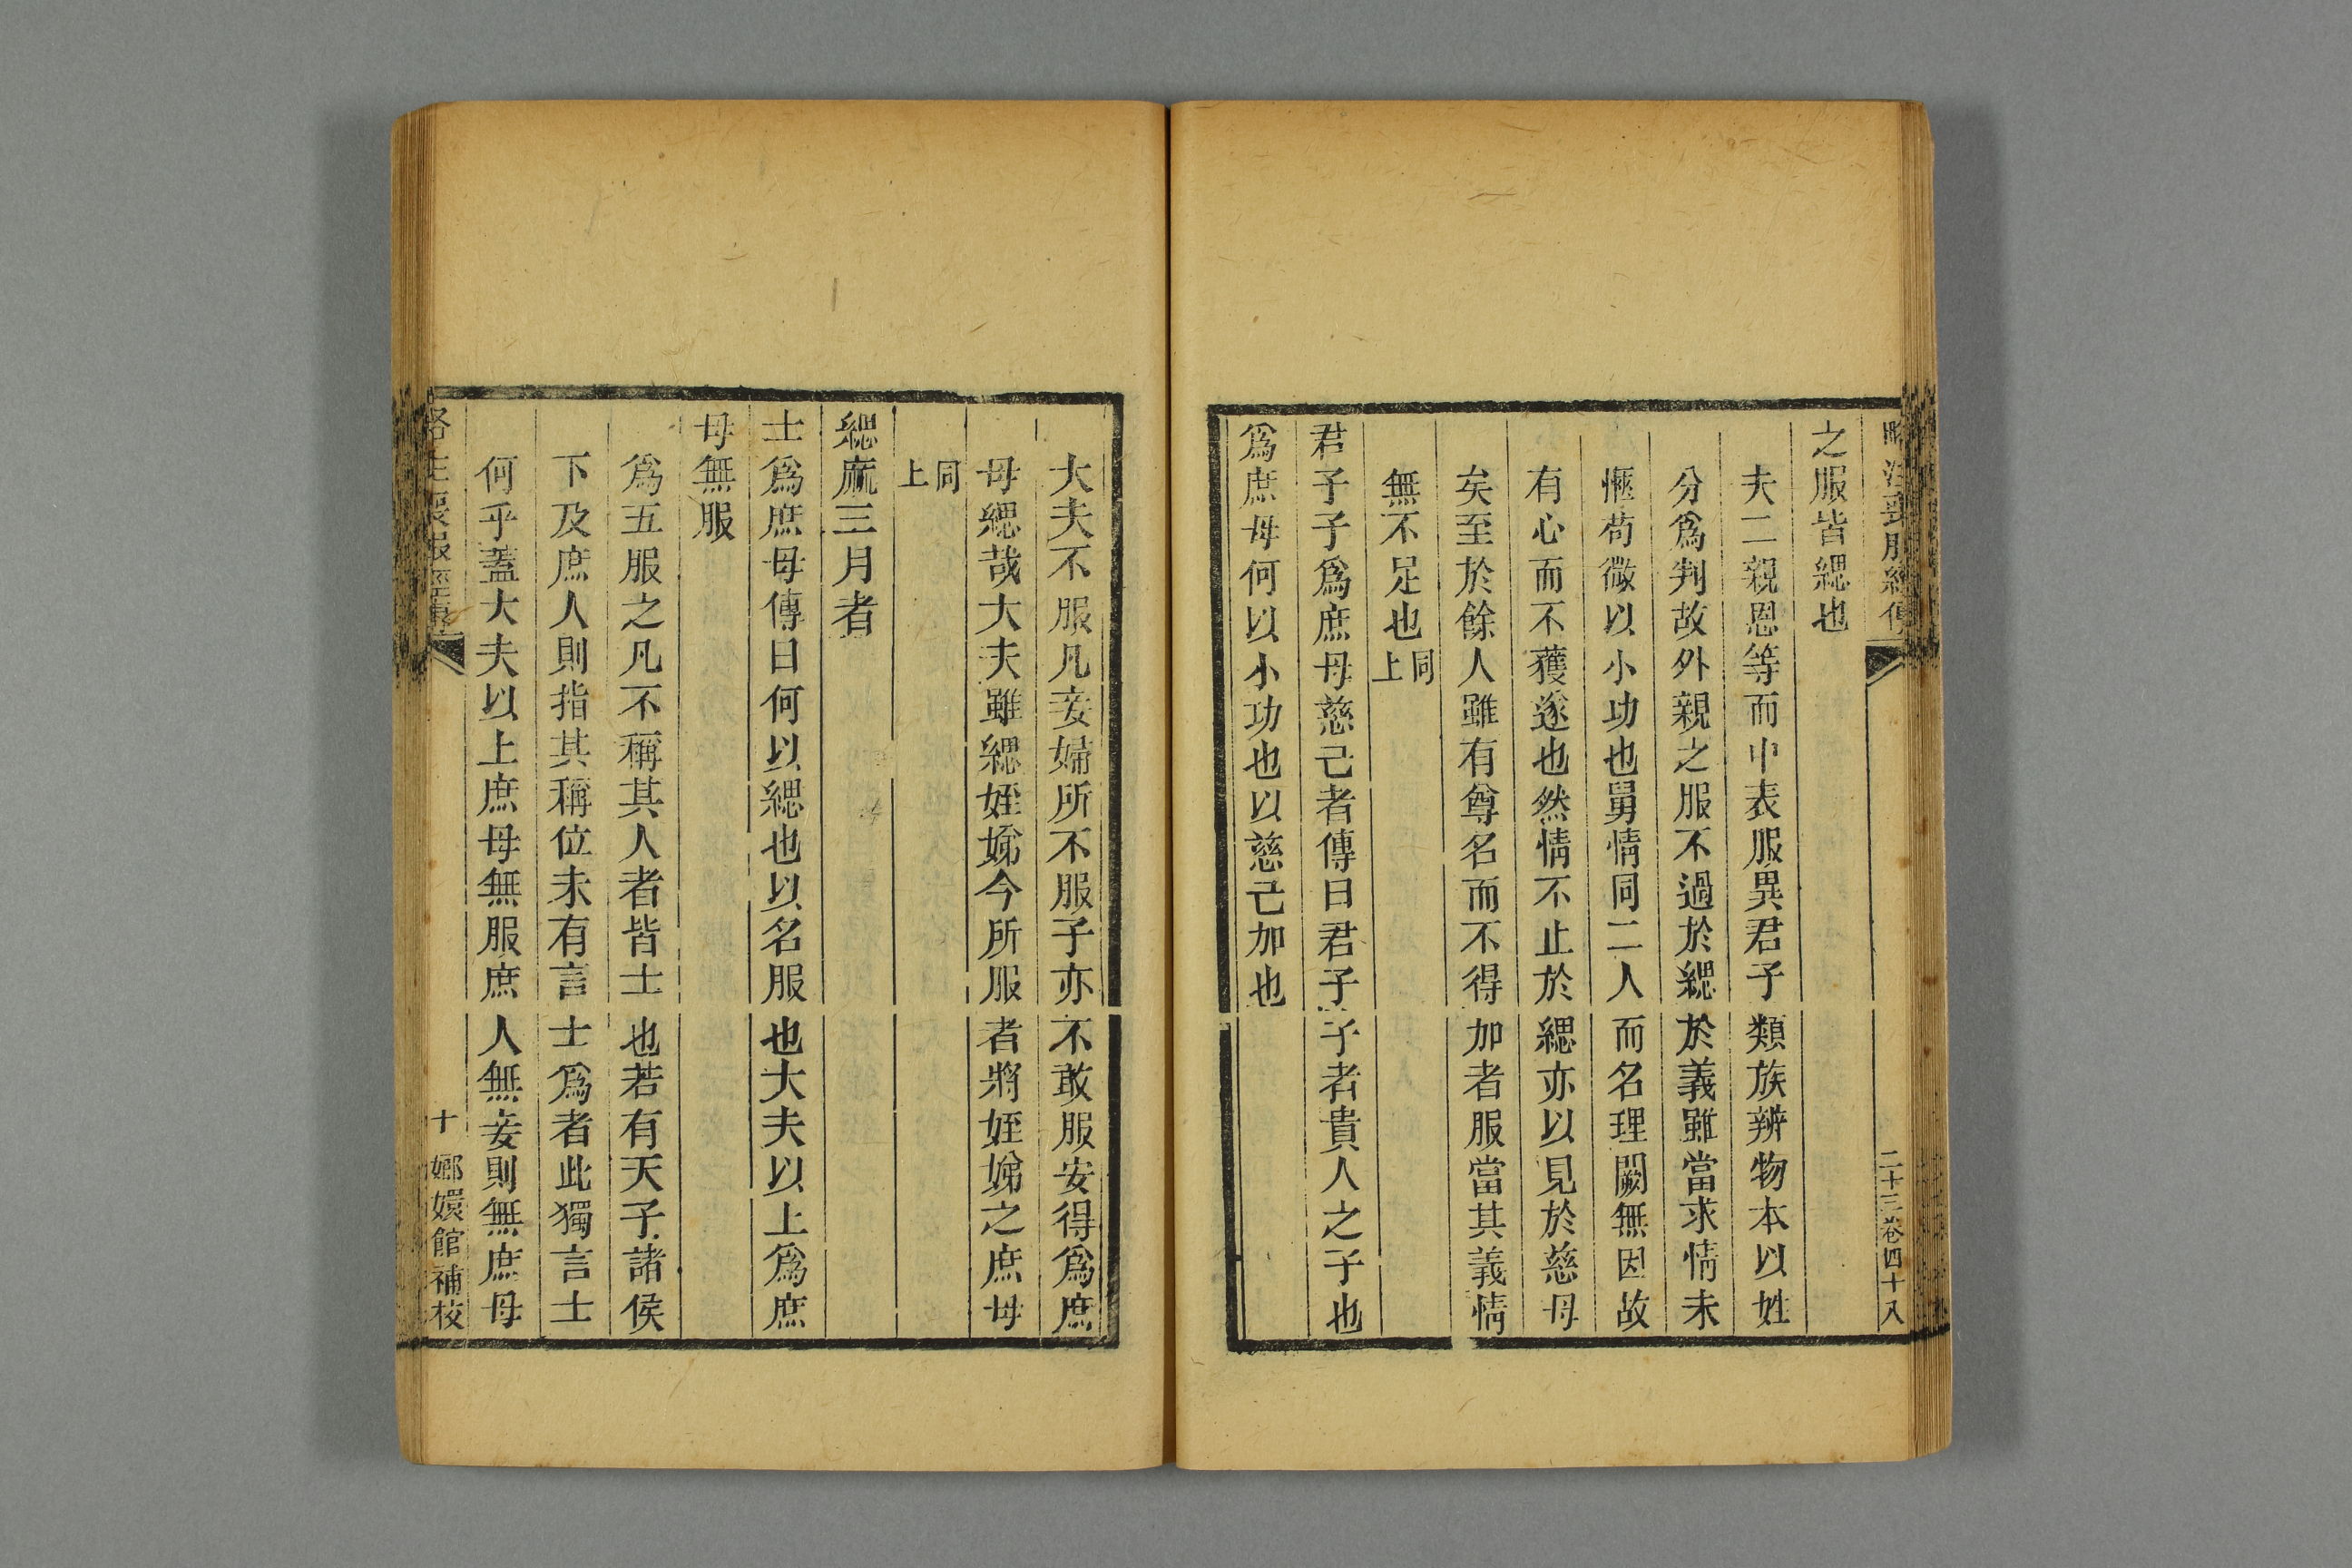 略注喪服經傳
二十三卷四十八
之服皆緦也
夫二親恩等而中表服異君子類族辨物本以姓
分爲判故外親之服不過於緦於義雖當求情未
愜苟微以小功也舅情同二人而名理闕無因故
有心而不獲遂也然情不止於緦亦以見於慈母
矣至於餘人雖有尊名而不得加者服當其義情
無不足也同上
君子子爲庶母慈己者傳曰君子子者貴人之子也
爲庶母何以小功也以慈己加也
大夫不服凡妾婦所不服子亦不敢服安得爲庶
母緦哉大夫雖緦姪娣今所服者將姪娣之庶母
同上
緦麻三月者
士爲庶母傳曰何以緦也以名服也大夫以上爲庶
母無服
爲五服之凡不稱其人者皆士也若有天子諸侯
下及庶人則指其稱位未有言士爲者此獨言士
何乎蓋大夫以上庶母無服庶人無妾則無庶母
十
嫏嬛館補校